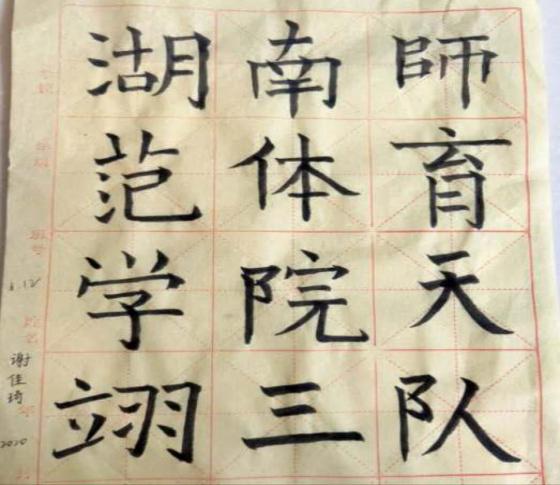 湖南師
范体育
学院天
翊三队
1.12
谢佳琦
2020